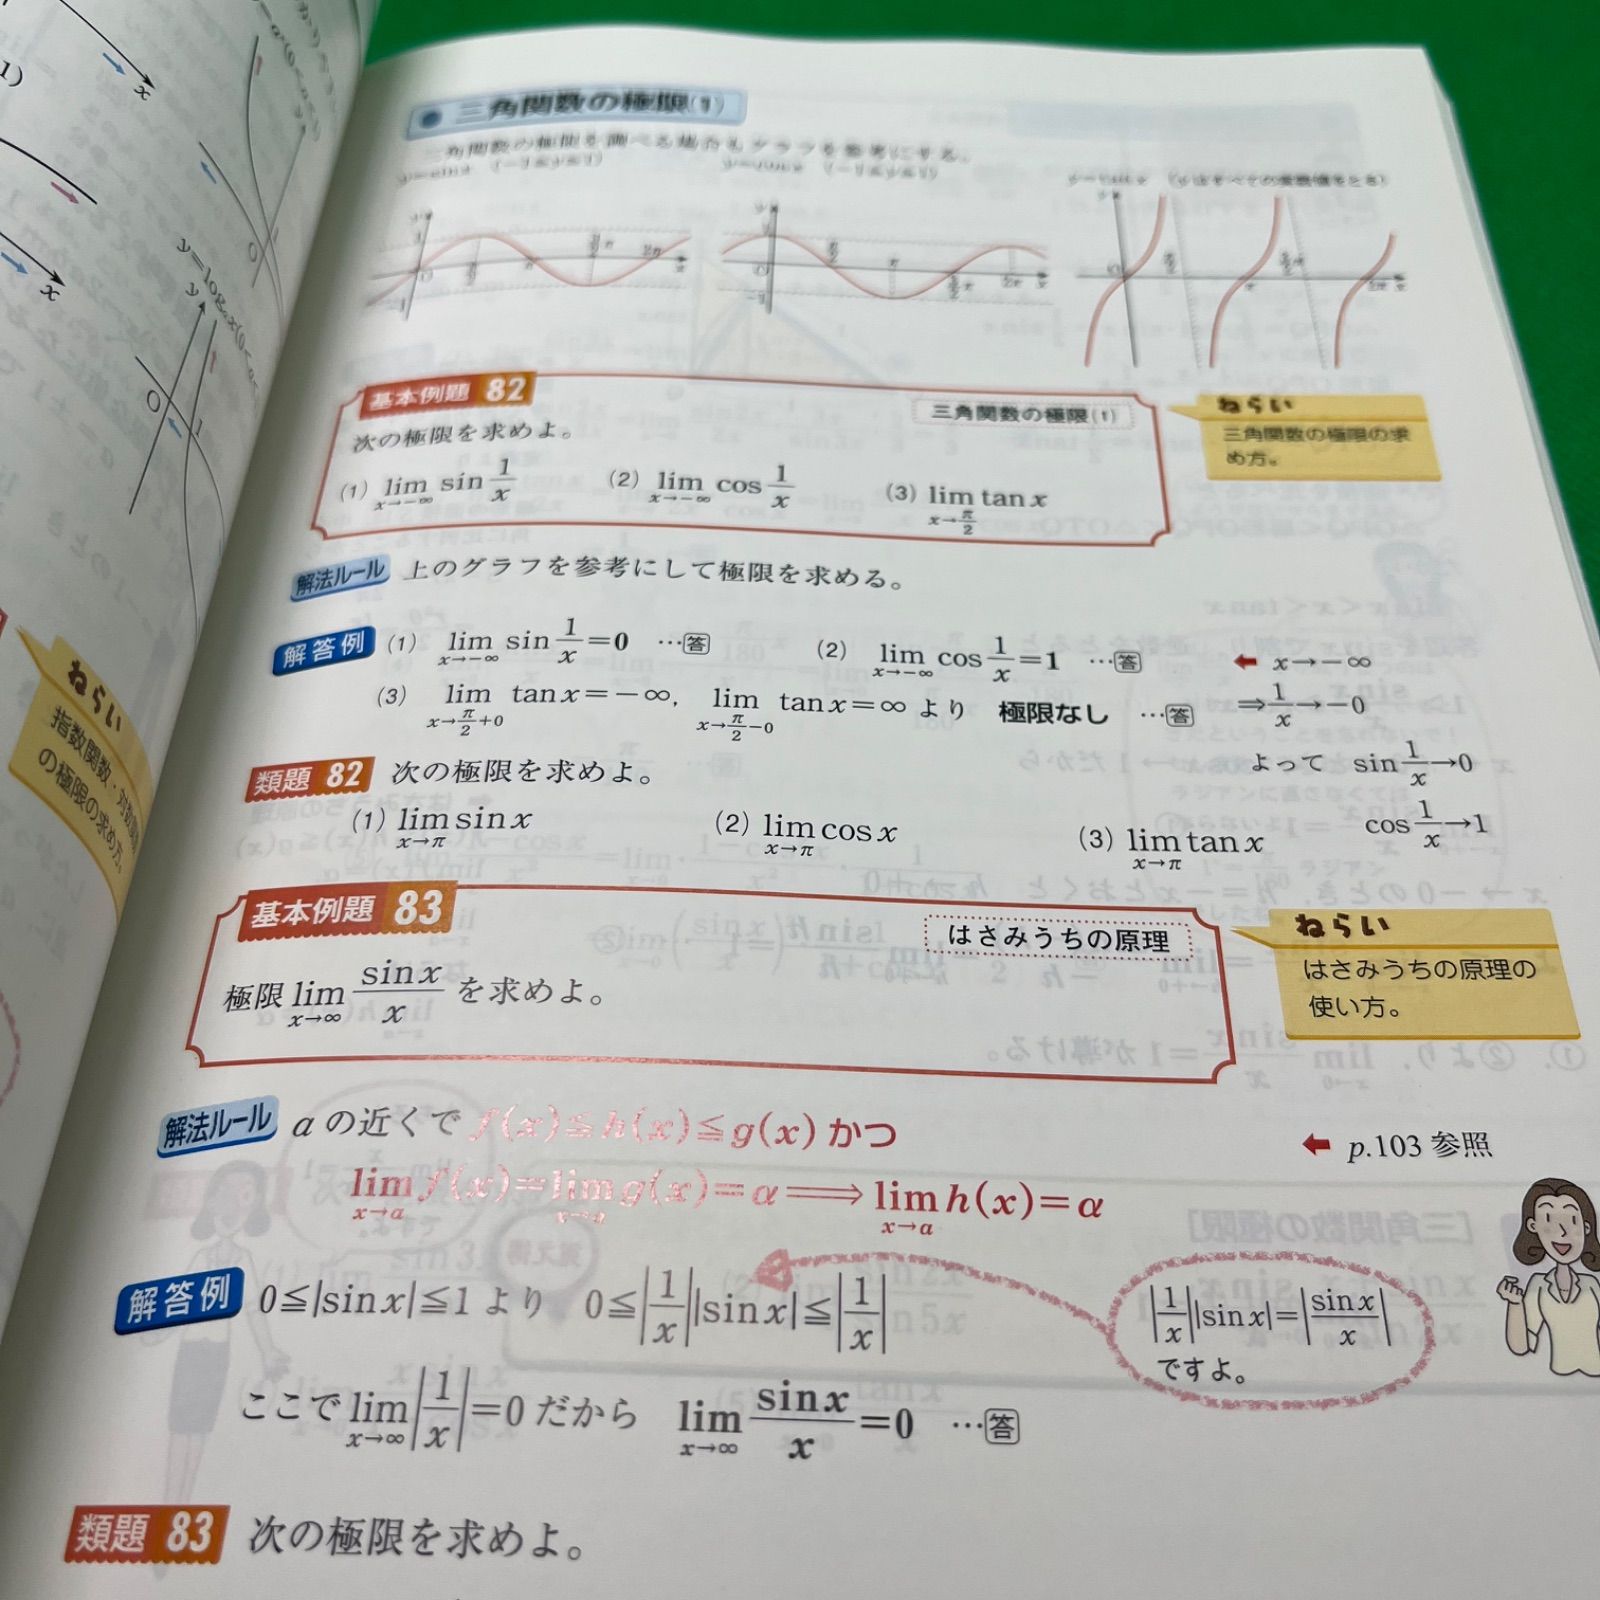 三角関数の極限(1)
三角関数の極限を調べる場合もグラフを参考にする。
y=sinx (−1≦y≦1)
y=cosx (−1≦y≦1)
y=tanx (yはすべての実数値をとる)
基本例題 82
三角関数の極限(1)
次の極限を求めよ。
(1) lim x→−∞ sin 1/x (2) lim x→−∞ cos 1/x (3) lim x→π/2 tan x
ねらい
三角関数の極限の求
め方。
解法ルール 上のグラフを参考にして極限を求める。
解答例 (1) lim x→−∞ sin 1/x =0 …答 (2) lim x→−∞ cos 1/x =1 …答
(3) lim x→π/2+0 tan x=−∞, lim x→π/2−0 tan x=∞ より 極限なし …答
← x→−∞
⇒ 1/x →−0
よって sin 1/x →0
cos 1/x →1
類題 82 次の極限を求めよ。
(1) lim x→π sin x (2) lim x→π cos x (3) lim x→π tan x
基本例題 83
はさみうちの原理
極限 lim x→∞ sin x/x を求めよ。
ねらい
はさみうちの原理の
使い方。
解法ルール aの近くで f(x)≦h(x)≦g(x) かつ
lim x→a f(x)=lim x→a g(x)=α⟹lim x→a h(x)=α
← p.103 参照
解答例 0≦|sin x|≦1 より 0≦|1/x||sin x|≦|1/x|
|1/x||sin x|=|sin x/x|
ですよ。
ここで lim x→∞ |1/x|=0 だから lim x→∞ sin x/x =0 …答
類題 83 次の極限を求めよ。
ねらい
指数関数・対数関数
の極限の求め方。